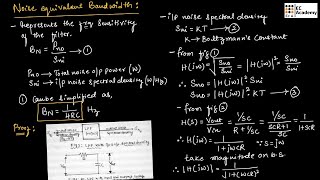 Noise Equivalent Bandwidth :
- Represents the freq Sensitivity
of the filter.
BN = Pno / Sni → ①
Pno → Total noise o/p power (W)
Sni → i/p noise spectral density (W/Hz)
① can be simplified as,
BN = 1/4RC Hz
Proof:
- i/p noise spectral density
Sni = KT → ②
K → Boltzmann's Constant
- from fig ①
H(iω) = Sno / Sni
∴ Sno = |H(iω)|² Sni
Sno = |H(iω)|² KT → ③
- from fig ②
H(s) = Vout / Vin = 1/SC / R + 1/SC = 1/SC / SCR+1 / SC = 1 / 1+SCR
∵ s = jω
H(iω) = 1 / 1+jωCR
take magnitude on b.s.
∴ |H(iω)|² = 1 / 1+(ωCR)²
EC Academy